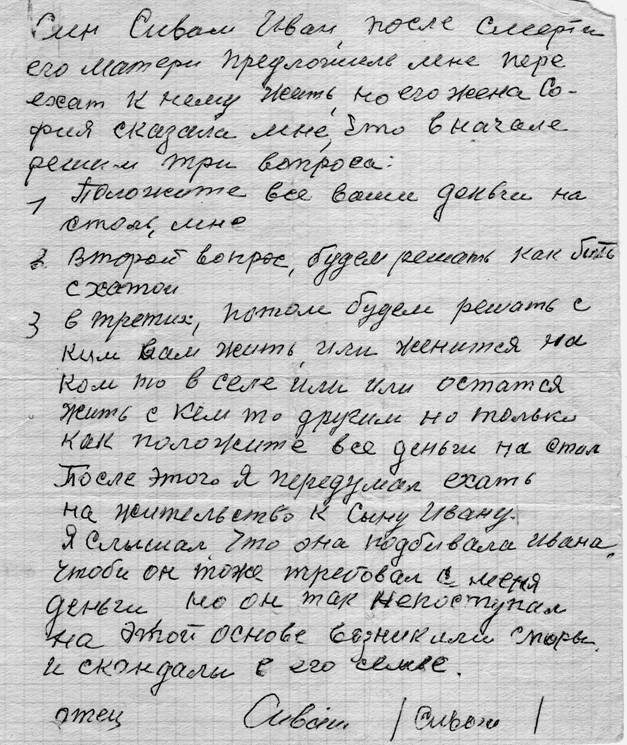 Син Сивал Иван, после смерти
его матери предложиле мне пере
ехат к нему жить, но его жена Со-
фия сказала мне, что в начале
решим три вопроса:
1 Положите все ваши деньги на
столь, мне
2 Второй вопрос, будем решать как бить
с хатой
3 в третих, потом будем решать с
ким вам жить, или женится на
ком то в селе или или остатся
жить с кем то другим но только
как положите все деньги на стол
После этого Я передумал ехать
на жительство к Сыну Ивану.
Я слышал, что она подбивала Ивана,
чтоби он тоже требовал с меня
деньги но он так непоступал
на этой основе возникали споры
и скандали в его семье.
отец